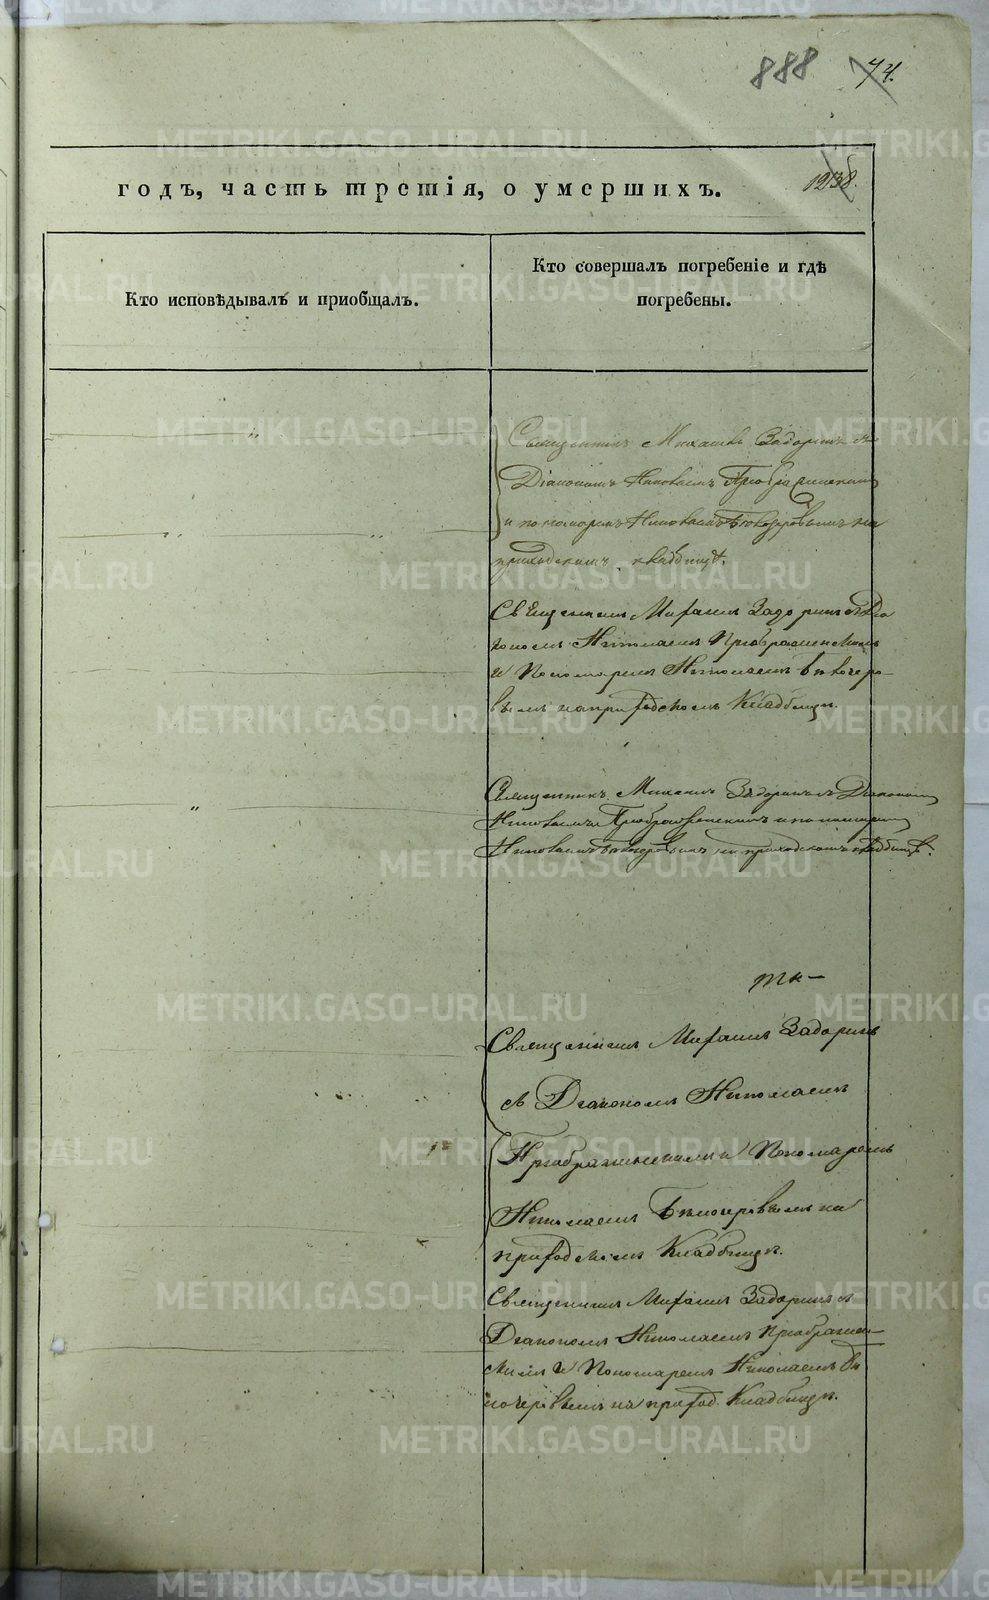 888 74.
годъ, часть третія, о умершихъ.
1213 об.
Кто исповѣдывалъ и приобщалъ.
Кто совершалъ погребеніе и гдѣ
погребены.
Священникъ Михаилъ Задоринъ съ
Діакономъ Николаемъ Преображенскимъ
и пономаремъ Николаемъ Бѣлозеровымъ на
приходскомъ кладбищѣ.
Священникъ Михаилъ Задоринъ съ Діа
кономъ Николаемъ Преображенскимъ
и Пономаремъ Николаемъ Бѣлозеро-
вымъ на приходскомъ Кладбищѣ.
Священникъ Михаилъ Задоринъ съ Діакономъ
Николаемъ Преображенскимъ и пономаремъ
Николаемъ Бѣлозеровымъ на приходскомъ кладбищѣ.
Священникъ Михаилъ Задоринъ
съ Діакономъ Николаемъ
Преображенскимъ и Пономаремъ
Николаемъ Бѣлозеровымъ на
приходскомъ Кладбищѣ.
Священникъ Михаилъ Задоринъ съ
Діакономъ Николаемъ Преображен-
скимъ и Пономаремъ Николаемъ Бѣ
лозеровымъ на приход. Кладбищѣ.
METRIKI.GASO-URAL.RU